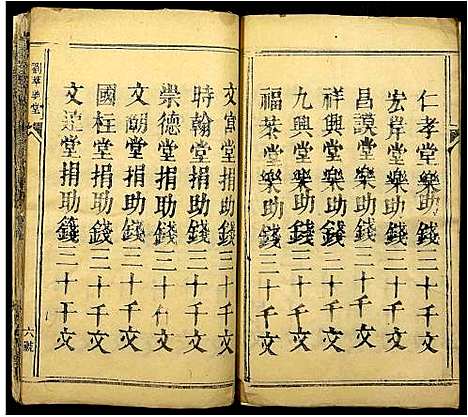 仁孝堂樂助錢二十千文
宏岸堂樂助錢二十千文
昌説堂樂助錢二十千文
祥興堂樂助錢二十千文
九興堂樂助錢二十千文
福荼堂樂助錢二十千文
文宫堂捐助錢二十千文
時翰堂捐助錢二十千文
崇德堂捐助錢二十千文
文朗堂捐助錢二十千文
國柱堂捐助錢二十千文
文達堂捐助錢二十千文
六號